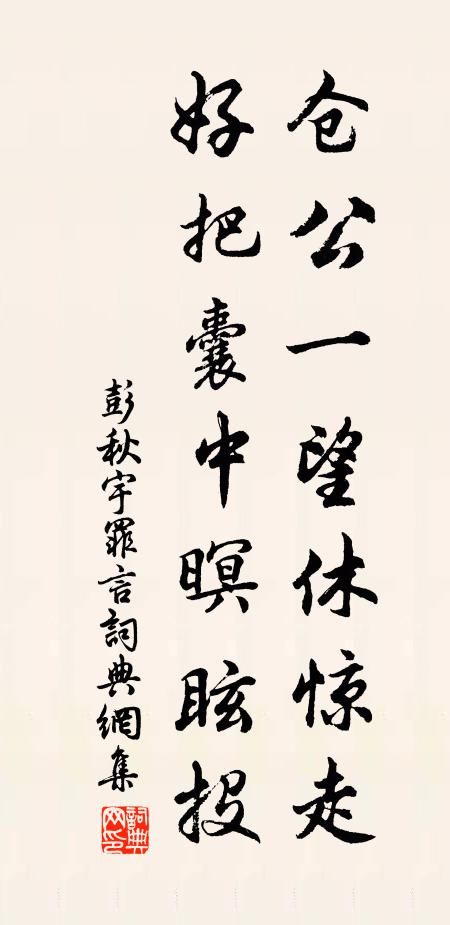 仓公一望休惊走
好把囊中暝眩投
彭秋宇罪言詞典網集
詞典网印